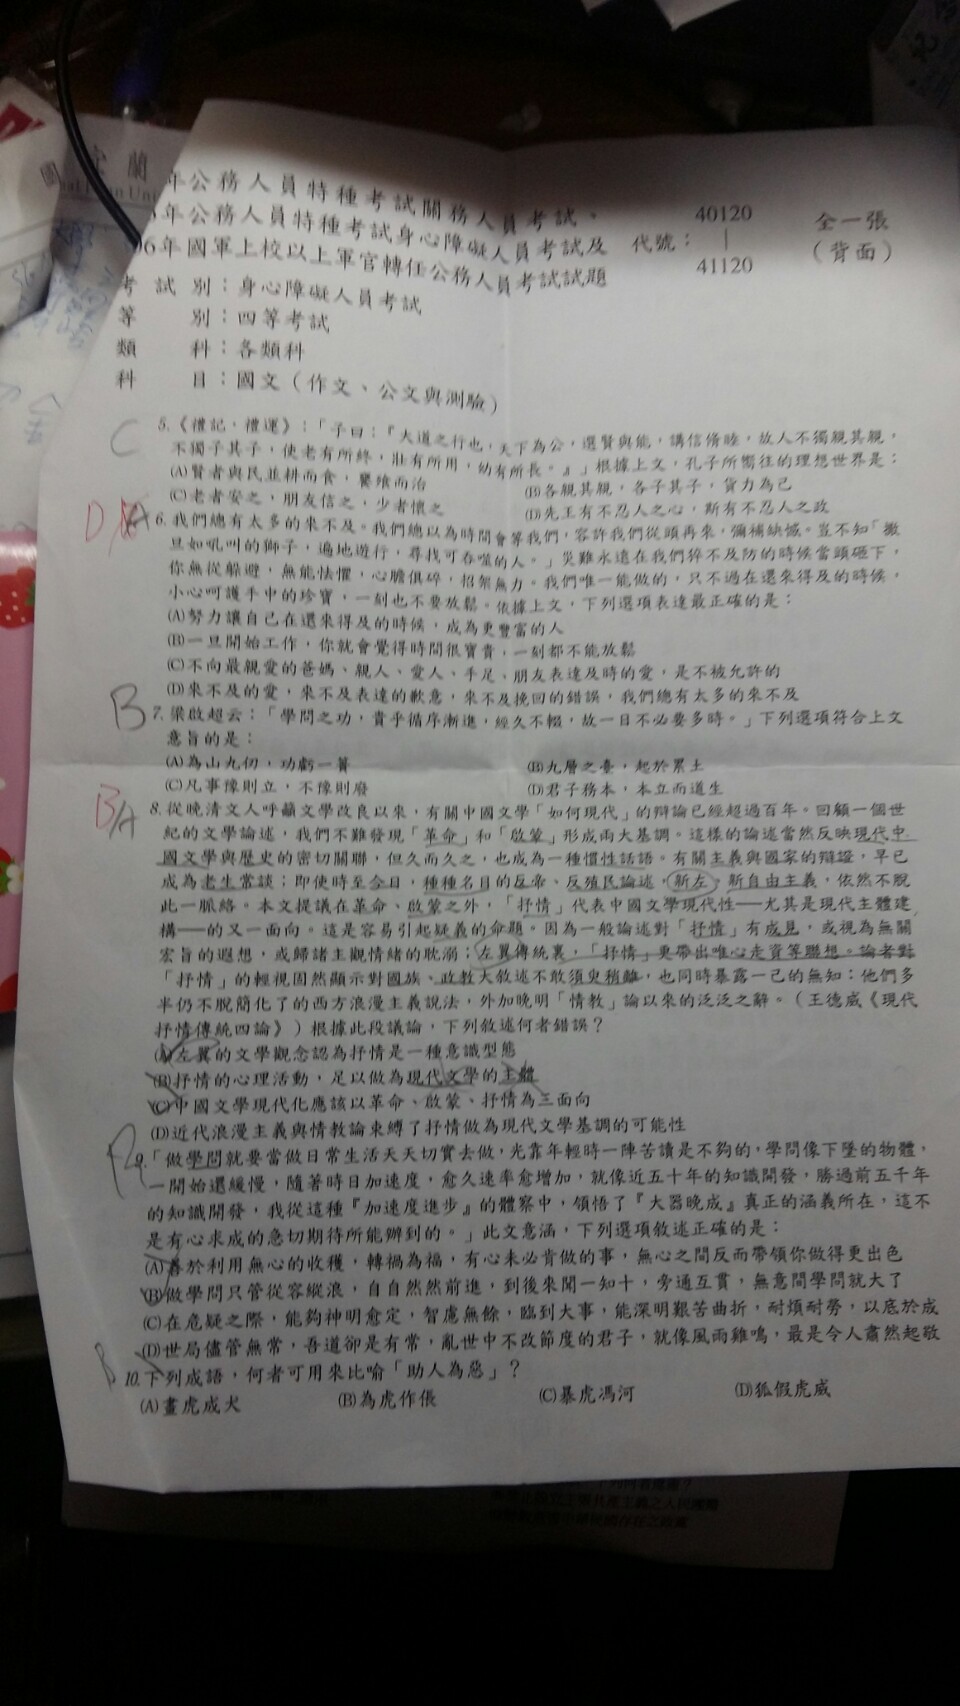 蘭
年公務人員特種考試關務人員考試、
年公務人員特種考試身心障礙人員考試及
06年國軍上校以上軍官轉任公務人員考試試題
代號：
40120
|
41120
全一張
（背面）
考試別：身心障礙人員考試
等別：四等考試
類科：各類科
科目：國文（作文、公文與測驗）
C
5.《禮記．禮運》：「子曰：『大道之行也，天下為公，選賢與能，講信脩睦，故人不獨親其親，
不獨子其子，使老有所終，壯有所用，幼有所長。』」根據上文，孔子所嚮往的理想世界是：
(A)賢者與民並耕而食，饔飧而治
(B)各親其親，各子其子，貨力為己
(C)老者安之，朋友信之，少者懷之
(D)先王有不忍人之心，斯有不忍人之政
D
6.我們總有太多的來不及。我們總以為時間會等我們，容許我們從頭再來，彌補缺憾。豈不知「撒
旦如吼叫的獅子，遍地遊行，尋找可吞噬的人。」災難永遠在我們猝不及防的時候當頭砸下，
你無從躲避，無能怯懼，心膽俱碎，招架無力。我們唯一能做的，只不過在還來得及的時候，
小心呵護手中的珍寶，一刻也不要放鬆。依據上文，下列選項表達最正確的是：
(A)努力讓自己在還來得及的時候，成為更豐富的人
(B)一旦開始工作，你就會覺得時間很寶貴，一刻都不能放鬆
(C)不向最親愛的爸媽、親人、愛人、手足、朋友表達及時的愛，是不被允許的
(D)來不及的愛，來不及表達的歉意，來不及挽回的錯誤，我們總有太多的來不及
B
7.梁啟超云：「學問之功，貴乎循序漸進，經久不輟，故一日不必要多時。」下列選項符合上文
意旨的是：
(A)為山九仞，功虧一簣
(B)九層之臺，起於累土
(C)凡事豫則立，不豫則廢
(D)君子務本，本立而道生
B/A
8.從晚清文人呼籲文學改良以來，有關中國文學「如何現代」的辯論已經超過百年。回顧一個世
紀的文學論述，我們不難發現「革命」和「啟蒙」形成兩大基調。這樣的論述當然反映現代中
國文學與歷史的密切關聯，但久而久之，也成為一種慣性話語。有關主義與國家的辯證，早已
成為老生常談；即使時至今日，種種名目的反帝、反殖民論述，新左，新自由主義，依然不脫
此一脈絡。本文提議在革命、啟蒙之外，「抒情」代表中國文學現代性──尤其是現代主體建
構──的又一面向。這是容易引起疑義的命題。因為一般論述對「抒情」有成見，或視為無關
宏旨的遐想，或歸諸主觀情緒的耽溺；左翼傳統裏，「抒情」更帶出唯心走資等聯想。論者對
「抒情」的輕視固然顯示對國族、政教大敘述不敢須臾稍離，也同時暴露一己的無知：他們多
半仍不脫簡化了的西方浪漫主義說法，外加晚明「情教」論以來的泛泛之辭。（王德威《現代
抒情傳統四論》）根據此段議論，下列敘述何者錯誤？
(A)左翼的文學觀念認為抒情是一種意識型態
(B)抒情的心理活動，足以做為現代文學的主體
(C)中國文學現代化應該以革命、啟蒙、抒情為三面向
(D)近代浪漫主義與情教論束縛了抒情做為現代文學基調的可能性
9.「做學問就要當做日常生活天天切實去做，光靠年輕時一陣苦讀是不夠的，學問像下墜的物體，
一開始還緩慢，隨著時日加速度，愈久速率愈增加，就像近五十年的知識開發，勝過前五千年
的知識開發，我從這種『加速度進步』的體察中，領悟了『大器晚成』真正的涵義所在，這不
是有心求成的急切期待所能辦到的。」此文意涵，下列選項敘述正確的是：
(A)善於利用無心的收穫，轉禍為福，有心未必肯做的事，無心之間反而帶領你做得更出色
(B)做學問只管從容縱浪，自自然然前進，到後來聞一知十，旁通互貫，無意間學問就大了
(C)在危疑之際，能夠神明愈定，智慮無餘，臨到大事，能深明艱苦曲折，耐煩耐勞，以底於成
(D)世局儘管無常，吾道卻是有常，亂世中不改節度的君子，就像風雨雞鳴，最是令人肅然起敬
B
10.下列成語，何者可用來比喻「助人為惡」？
(A)畫虎成犬
(B)為虎作倀
(C)暴虎馮河
(D)狐假虎威